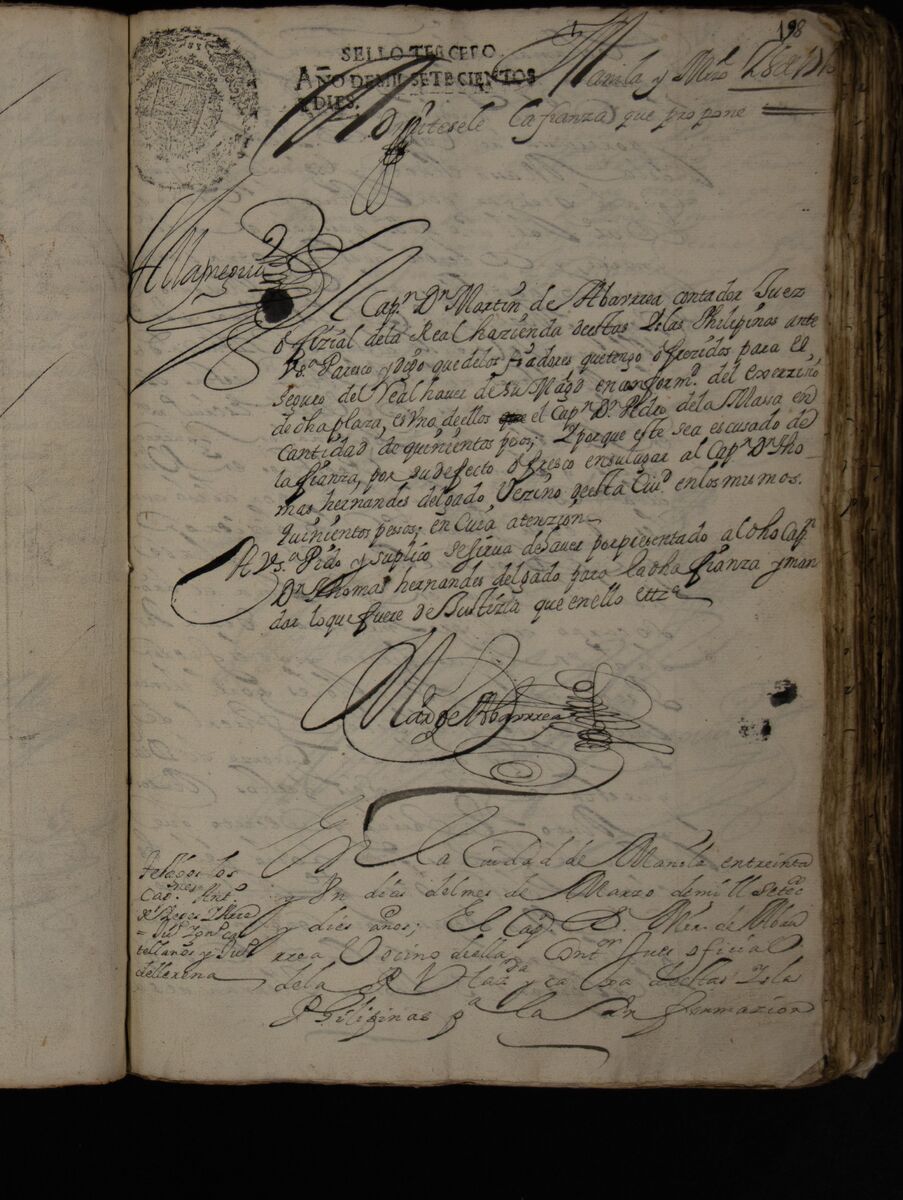 198
SELLO TERCERO.
AÑO DE MIL SETECIENTOS
Y DIES.
Manila y Mrzo 28 de 1710
Admitesele la fianza que propone
El Capn Dn Martin de Abarrea contador Juez
ofizial dela Real hazienda destas Islas Philipinas ante
Vsa Paresco y digo que delos fiadores que tengo ofrezidos para el
seguro del Real haver de su Magd en conformd del exerzizio
de dha plaza, es Vno de ellos el Capn Dn Pedro dela Massa en
cantidad de quinientos pesos; Y porque este sea escusado de
la fianza, por su defecto ofresco en su lugar al Capn Dn Tho-
mas hernandes delgado Vezino desta Ciud en los mismos
quinientos pesos; en Cuia atenzion
A Vsa Pido y suplico se sirva de haver por presentado al dho Capn
Dn Thomas hernandes delgado para la dha fianza y man
dar lo que fuere de Justizia que en ello ettza
Marn de Abarrea
En la Ciudad de Manila en treinta
y Vn dias del mes de Marzo de mill setecs
y diez años; El Capn D. Mrn de Abar
rrea Vecino de ella, Contor Jues oficial
dela Rl Hazda y caxa destas Isla
Philipinas pa la
Testigos los
Capnes Antt
teellanos y
dellerena